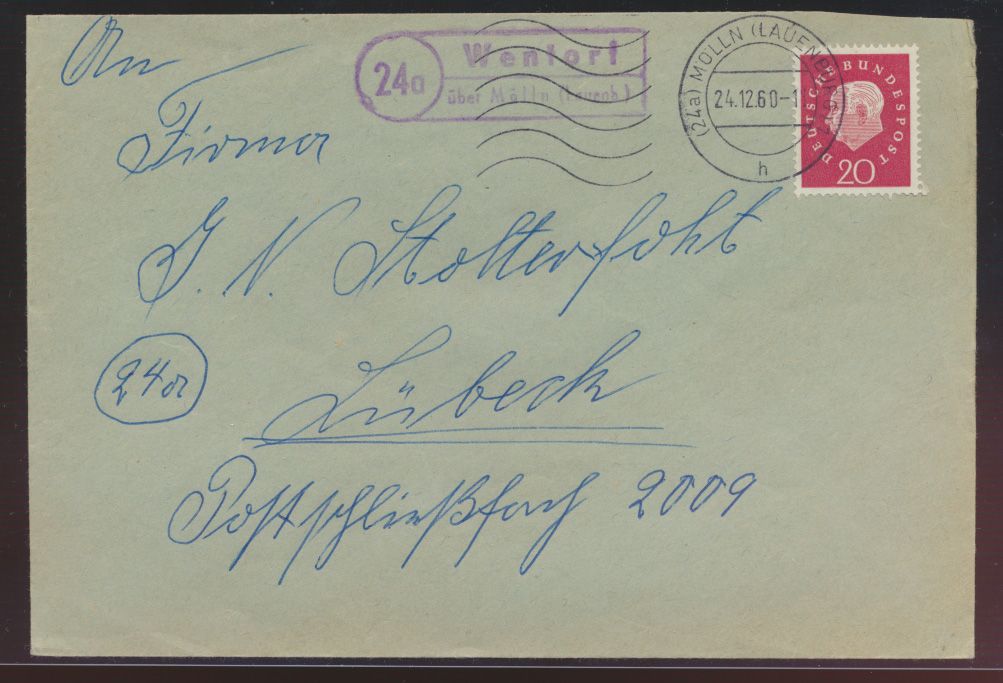 An
Firma
J. N. Stolterfoht
24a
Lübeck
Postschließfach 2009
24a
Wentorf
über Mölln (Lauenb.)
(24a) MÖLLN (LAUENBURG)
24.12.60-1
h
DEUTSCHE BUNDESPOST
20